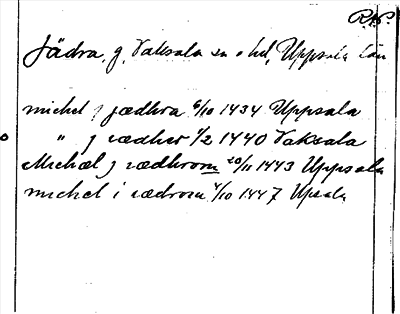 R.N.
Jädra, g, Vaksala sn o hd, Uppsala län
michel j jædhra 6/10 1434 Uppsala
" j rædher 1/2 1440 Vaksala
Michæl j rædhrom 20/11 1443 Uppsala
michel i rædrom 4/10 1447 Upsala